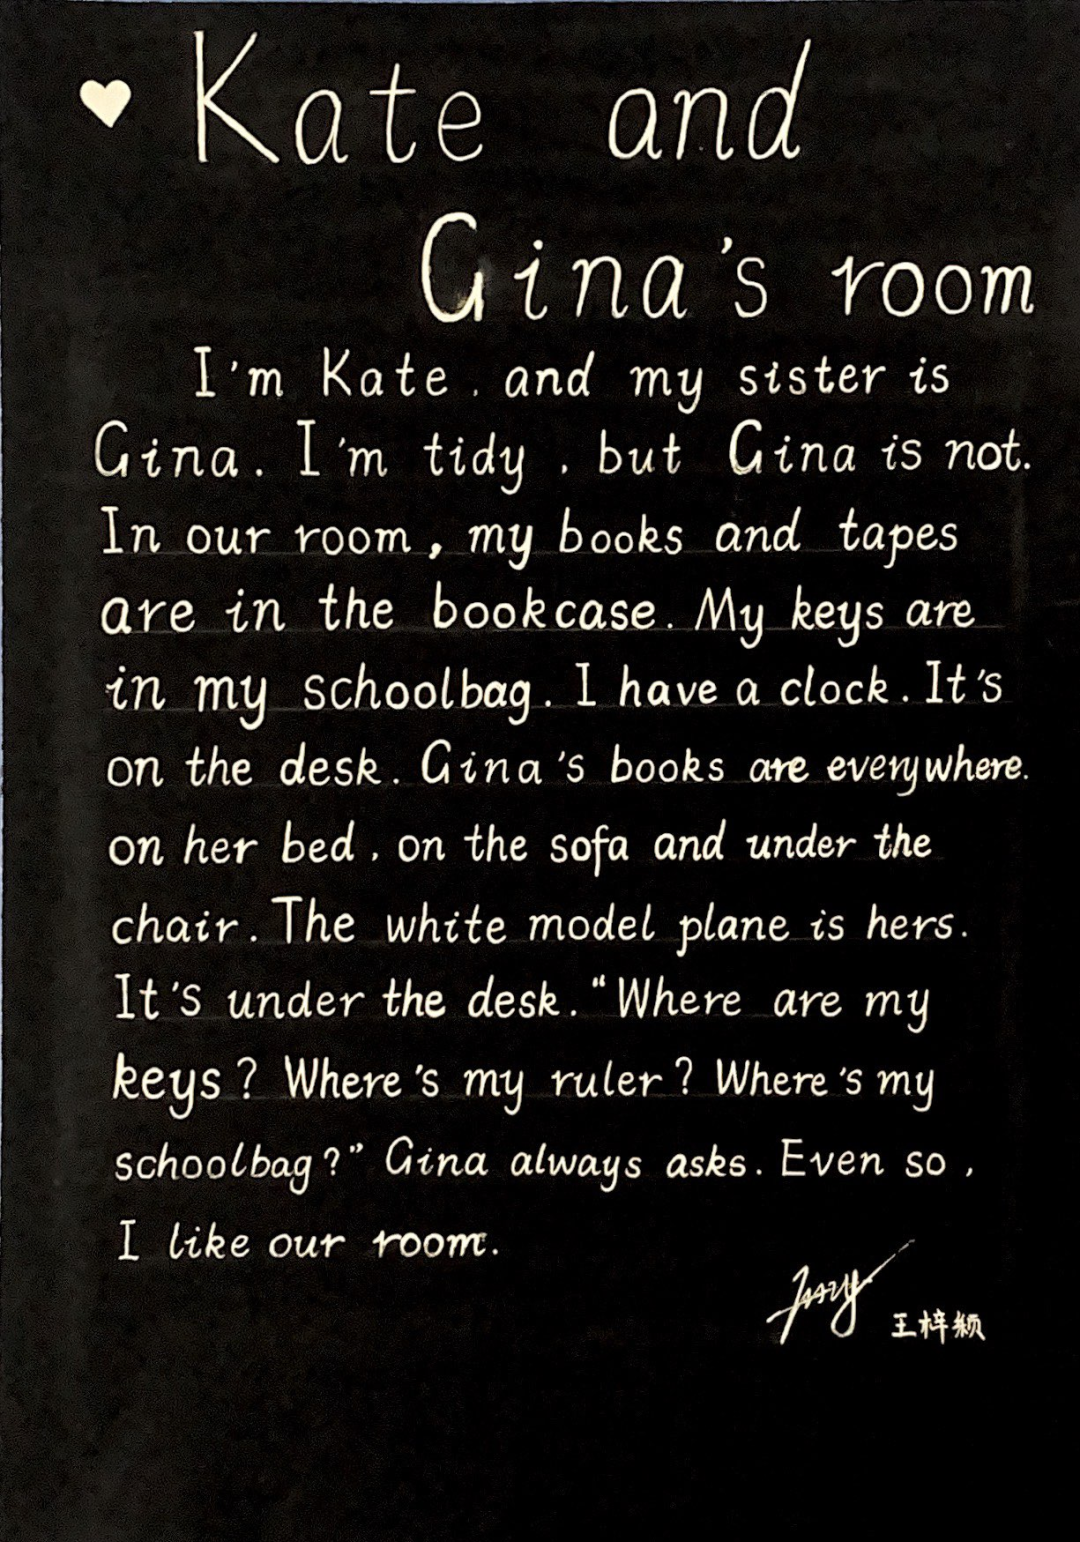 Kate and
Gina's room
I'm Kate, and my sister is
Gina. I'm tidy, but Gina is not.
In our room, my books and tapes
are in the bookcase. My keys are
in my schoolbag. I have a clock. It's
on the desk. Gina's books are everywhere.
on her bed, on the sofa and under the
chair. The white model plane is hers.
It's under the desk. "Where are my
keys? Where's my ruler? Where's my
schoolbag?" Gina always asks. Even so,
I like our room.
王梓颖